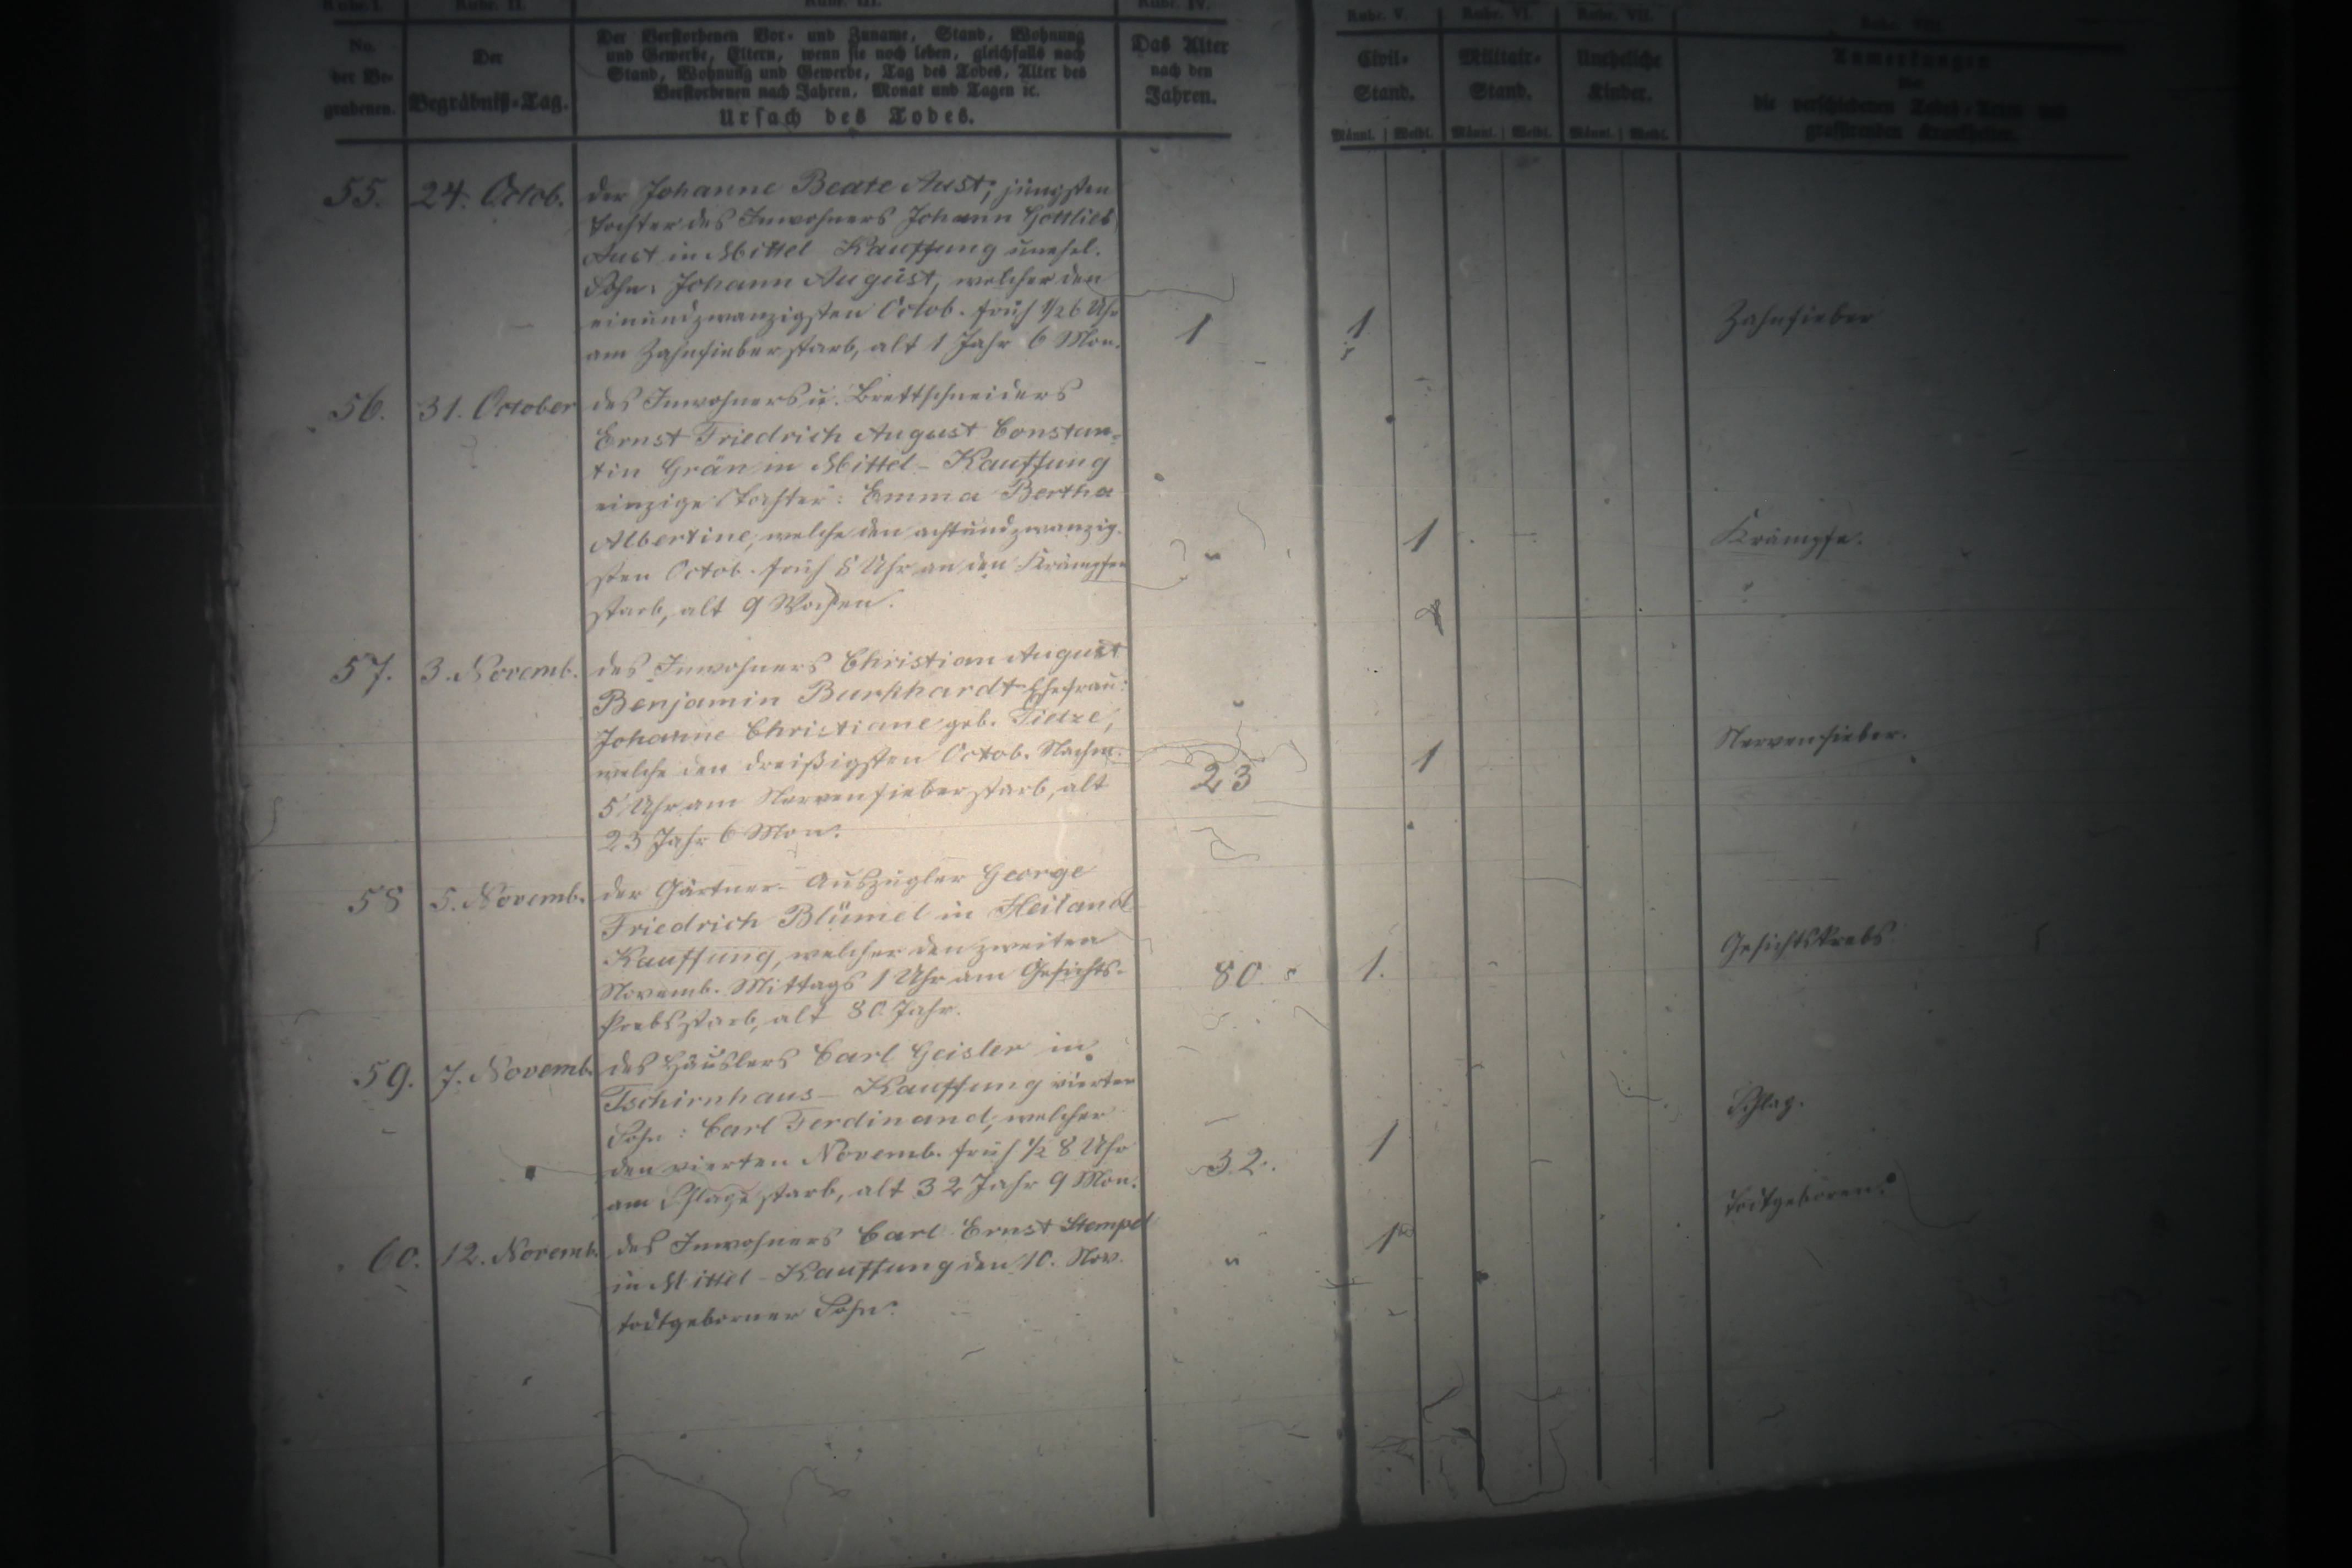 Rubr. I. Rubr. II. Rubr. III. Rubr. IV. Rubr. V. Rubr. VI. Rubr. VII. Rubr. VIII.
No.
der Be-
grabenen.
Der
Begräbniß-Tag.
Der Verstorbenen Vor- und Zuname, Stand, Wohnung
und Gewerbe, Eltern, wenn sie noch leben, gleichfalls nach
Stand, Wohnung und Gewerbe, Tag des Todes, Alter des
Verstorbenen nach Jahren, Monat und Tagen ic.
Ursach des Todes.
Das Alter
nach den
Jahren.
Civil-
Stand.
Männl. Weibl.
Militair-
Stand.
Männl. Weibl.
Uneheliche
Kinder.
Männl. Weibl.
Anmerkungen
über
die verschiedenen Todes-Arten und
grassirenden Krankheiten.
55. 24. Octob. der Johanne Beate Aust, jüngsten
Tochter des Inwohners Johann Gottlieb
Aust in Mittel Kauffung unehel.
Sohn: Johann August, welcher den
einundzwanzigsten Octob. früh 1/2 6 Uhr
am Zahnfieber starb, alt 1 Jahr 6 Mon. 1 1 Zahnfieber
56. 31. October des Inwohners u. Brettschneiders
Ernst Friedrich August Constan-
tin Grän in Mittel-Kauffung
einzige Tochter: Emma Bertha
Albertine, welche den achtundzwanzig-
sten Octob. früh 8 Uhr an den Krämpfen
starb, alt 9 Wochen. " 1 Krämpfe.
57. 3. Novemb. des Inwohners Christian August
Benjamin Burkhardt Ehefrau:
Johanne Christiane geb. Tietze,
welche den dreißigsten Octob. Nachm.
5 Uhr am Nervenfieber starb, alt
23 Jahr 6 Mon. 23 1 Nervenfieber.
58 5. Novemb. der Gärtner-Auszügler George
Friedrich Blümel in Heiland-
Kauffung, welcher den zweiten
Novemb. Mittags 1 Uhr am Gesichts-
krebs starb, alt 80 Jahr. 80. 1. Gesichtskrebs
59. 7. Novemb. des Häuslers Carl Geisler in
Tschirnhaus-Kauffung vierter
Sohn: Carl Ferdinand, welcher
den vierten Novemb. früh 1/2 8 Uhr
am Schlage starb, alt 32 Jahr 9 Mon. 32. 1 Schlag.
60. 12. Novemb. des Inwohners Carl Ernst Stempel
in Mittel-Kauffung den 10. Nov.
todtgeborner Sohn. " 1 Todtgeboren.